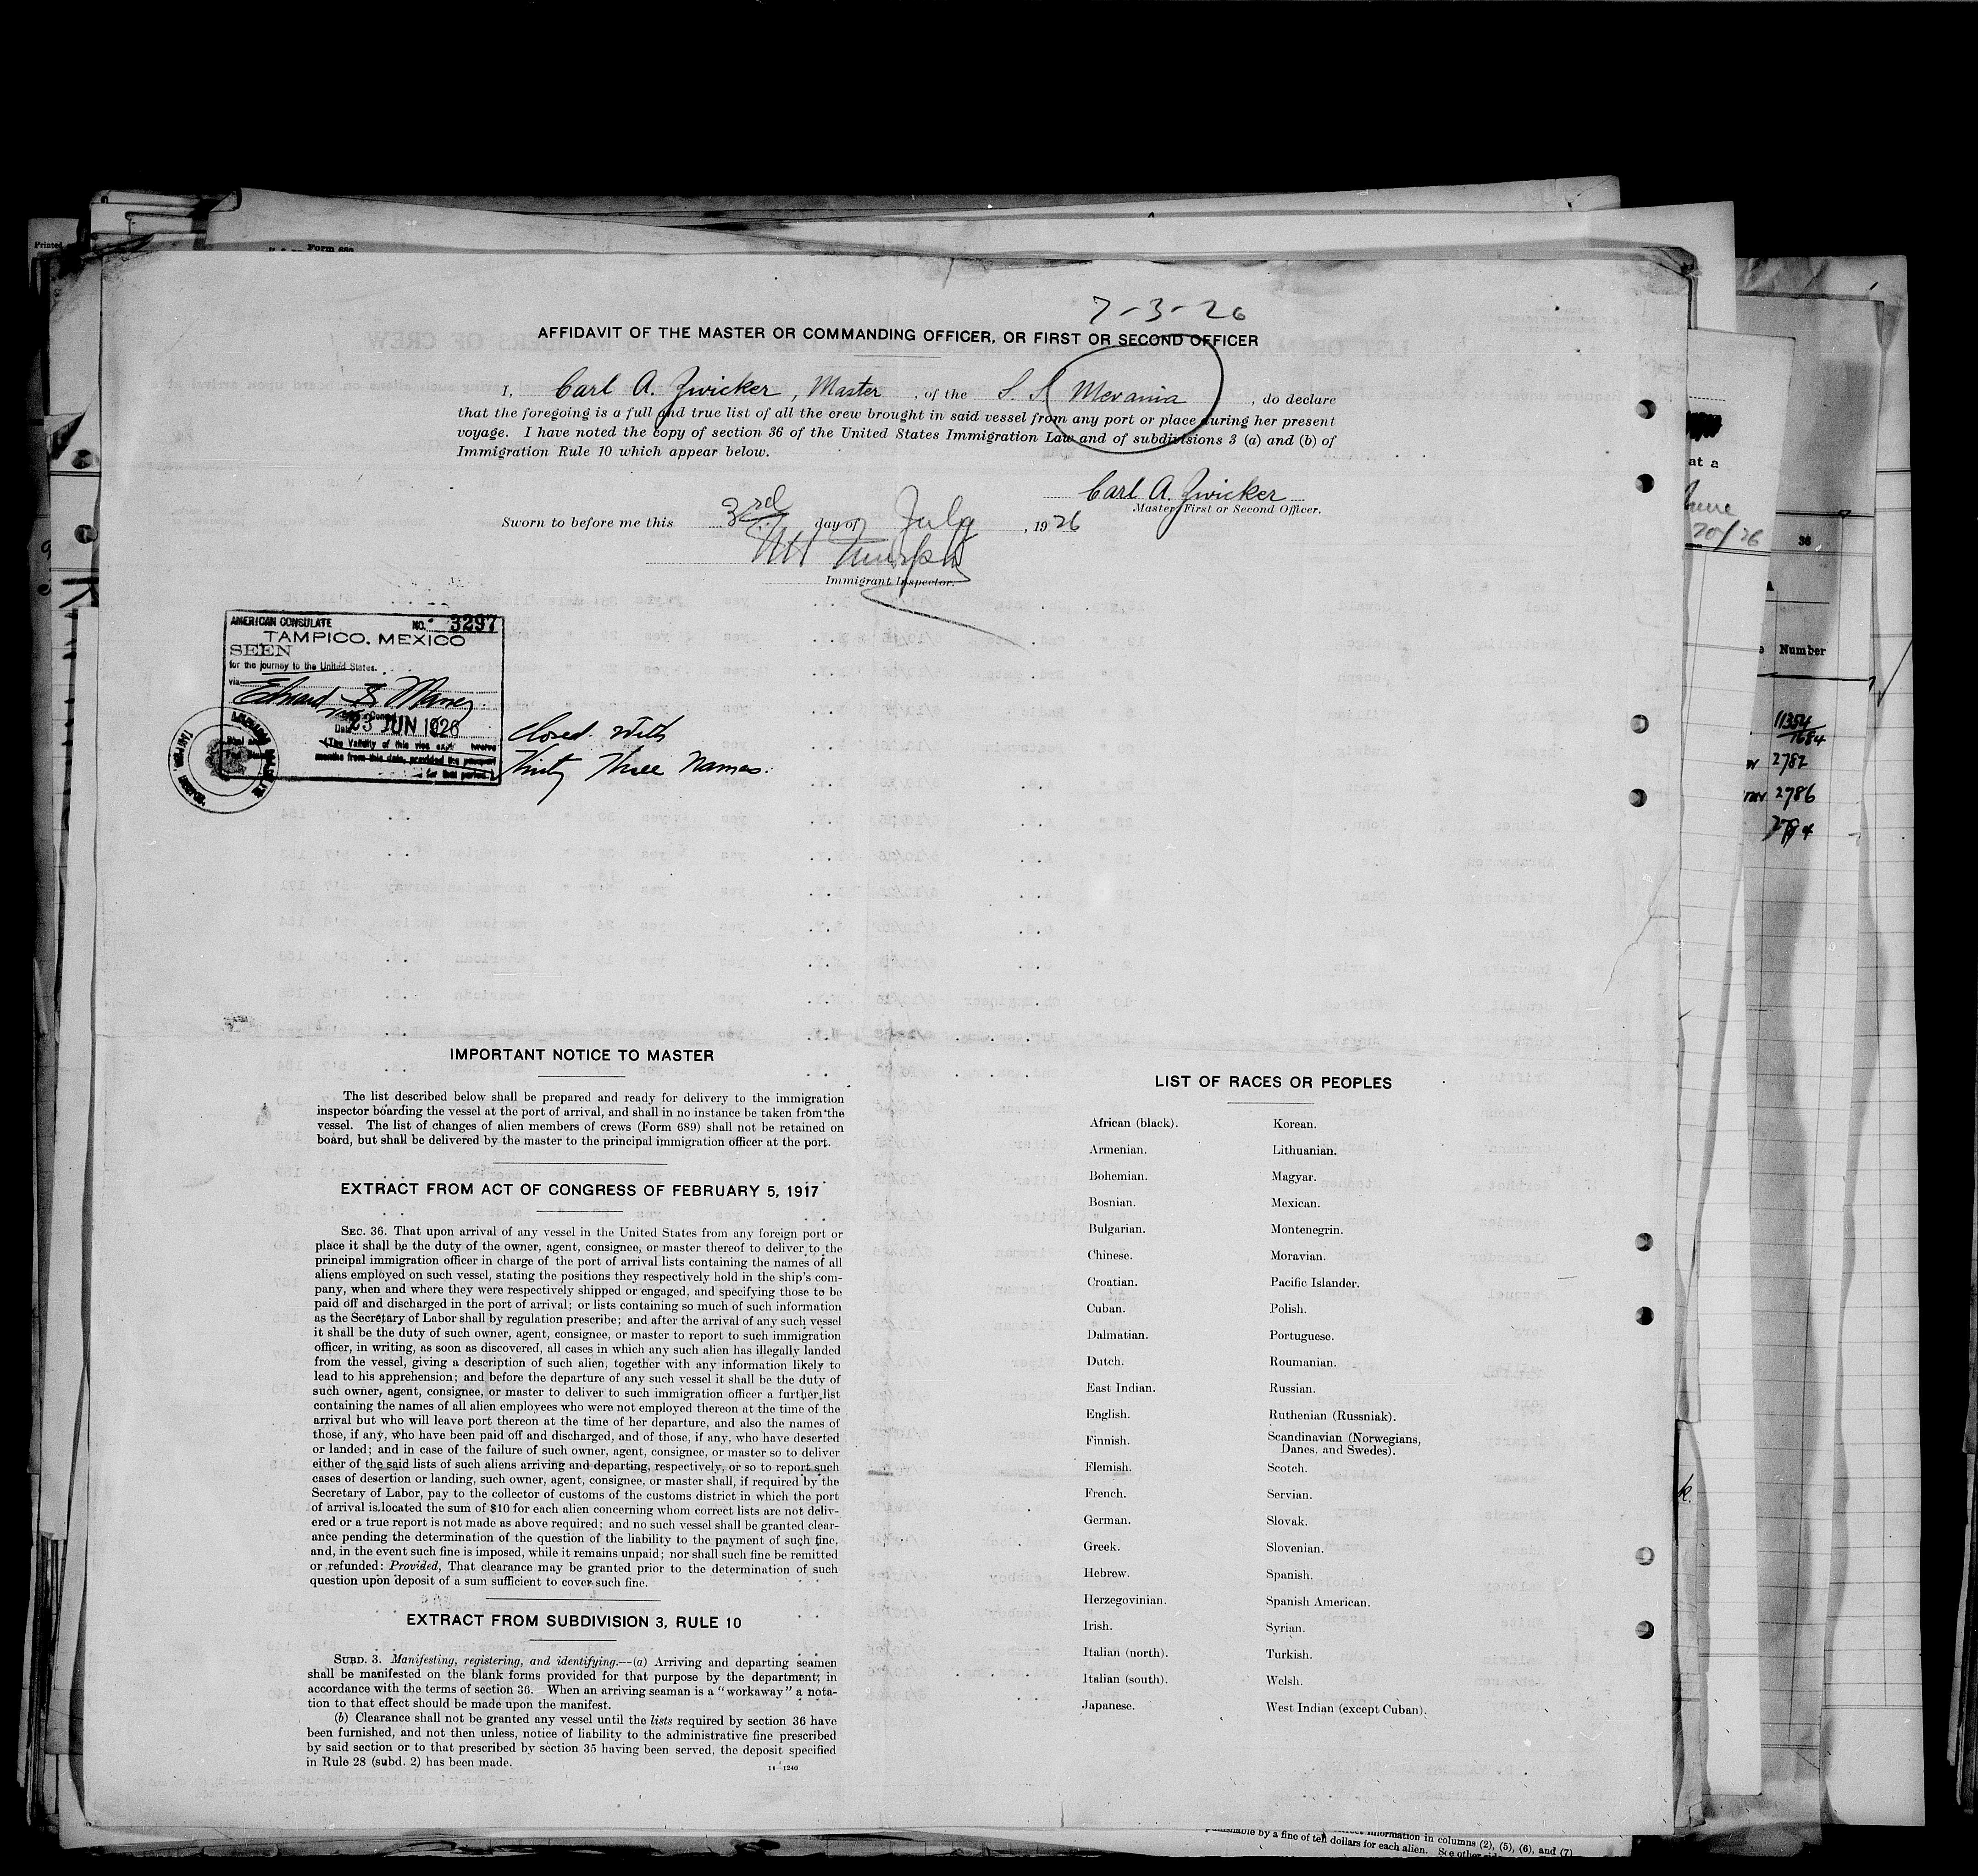 7-3-26
AFFIDAVIT OF THE MASTER OR COMMANDING OFFICER, OR FIRST OR SECOND OFFICER
I, Carl A. Zwicker, Master, of the S. S. Mevania, do declare
that the foregoing is a full and true list of all the crew brought in said vessel from any port or place during her present
voyage. I have noted the copy of section 36 of the United States Immigration Law and of subdivisions 3 (a) and (b) of
Immigration Rule 10 which appear below.
Carl A. Zwicker
Master, First or Second Officer.
Sworn to before me this 3rd day of July, 1926
Immigrant Inspector.
AMERICAN CONSULATE NO. 3297
TAMPICO, MEXICO
SEEN
for the journey to the United States.
via
Edward B.
Date 23 JUN 1926
(The Validity of this vise twelve
months from this date, provided the passport
for that period.)
closed with
Thirty Three Names.
IMPORTANT NOTICE TO MASTER
The list described below shall be prepared and ready for delivery to the immigration
inspector boarding the vessel at the port of arrival, and shall in no instance be taken from the
vessel. The list of changes of alien members of crews (Form 689) shall not be retained on
board, but shall be delivered by the master to the principal immigration officer at the port.
EXTRACT FROM ACT OF CONGRESS OF FEBRUARY 5, 1917
SEC. 36. That upon arrival of any vessel in the United States from any foreign port or
place it shall be the duty of the owner, agent, consignee, or master thereof to deliver to the
principal immigration officer in charge of the port of arrival lists containing the names of all
aliens employed on such vessel, stating the positions they respectively hold in the ship's com-
pany, when and where they were respectively shipped or engaged, and specifying those to be
paid off and discharged in the port of arrival; or lists containing so much of such information
as the Secretary of Labor shall by regulation prescribe; and after the arrival of any such vessel
it shall be the duty of such owner, agent, consignee, or master to report to such immigration
officer, in writing, as soon as discovered, all cases in which any such alien has illegally landed
from the vessel, giving a description of such alien, together with any information likely to
lead to his apprehension; and before the departure of any such vessel it shall be the duty of
such owner, agent, consignee, or master to deliver to such immigration officer a further list
containing the names of all alien employees who were not employed thereon at the time of the
arrival but who will leave port thereon at the time of her departure, and also the names of
those, if any, who have been paid off and discharged, and of those, if any, who have deserted
or landed; and in case of the failure of such owner, agent, consignee, or master so to deliver
either of the said lists of such aliens arriving and departing, respectively, or so to report such
cases of desertion or landing, such owner, agent, consignee, or master shall, if required by the
Secretary of Labor, pay to the collector of customs of the customs district in which the port
of arrival is located the sum of $10 for each alien concerning whom correct lists are not deliv-
ered or a true report is not made as above required; and no such vessel shall be granted clear-
ance pending the determination of the question of the liability to the payment of such fine,
and, in the event such fine is imposed, while it remains unpaid; nor shall such fine be remitted
or refunded: Provided, That clearance may be granted prior to the determination of such
question upon deposit of a sum sufficient to cover such fine.
EXTRACT FROM SUBDIVISION 3, RULE 10
SUBD. 3. Manifesting, registering, and identifying.—(a) Arriving and departing seamen
shall be manifested on the blank forms provided for that purpose by the department; in
accordance with the terms of section 36. When an arriving seaman is a "workaway" a nota-
tion to that effect should be made upon the manifest.
(b) Clearance shall not be granted any vessel until the lists required by section 36 have
been furnished, and not then unless, notice of liability to the administrative fine prescribed
by said section or to that prescribed by section 35 having been served, the deposit specified
in Rule 28 (subd. 2) has been made.
14—1240
LIST OF RACES OR PEOPLES
African (black).
Armenian.
Bohemian.
Bosnian.
Bulgarian.
Chinese.
Croatian.
Cuban.
Dalmatian.
Dutch.
East Indian.
English.
Finnish.
Flemish.
French.
German.
Greek.
Hebrew.
Herzegovinian.
Irish.
Italian (north).
Italian (south).
Japanese.
Korean.
Lithuanian.
Magyar.
Mexican.
Montenegrin.
Moravian.
Pacific Islander.
Polish.
Portuguese.
Roumanian.
Russian.
Ruthenian (Russniak).
Scandinavian (Norwegians,
Danes, and Swedes).
Scotch.
Servian.
Slovak.
Slovenian.
Spanish.
Spanish American.
Syrian.
Turkish.
Welsh.
West Indian (except Cuban).
Printed
Form 689
at a
June
20/26
36
Number
11354
1684
2782
2786
2784
by a fine of ten dollars for each alien. See other
information in columns (2), (5), (6), and (7)